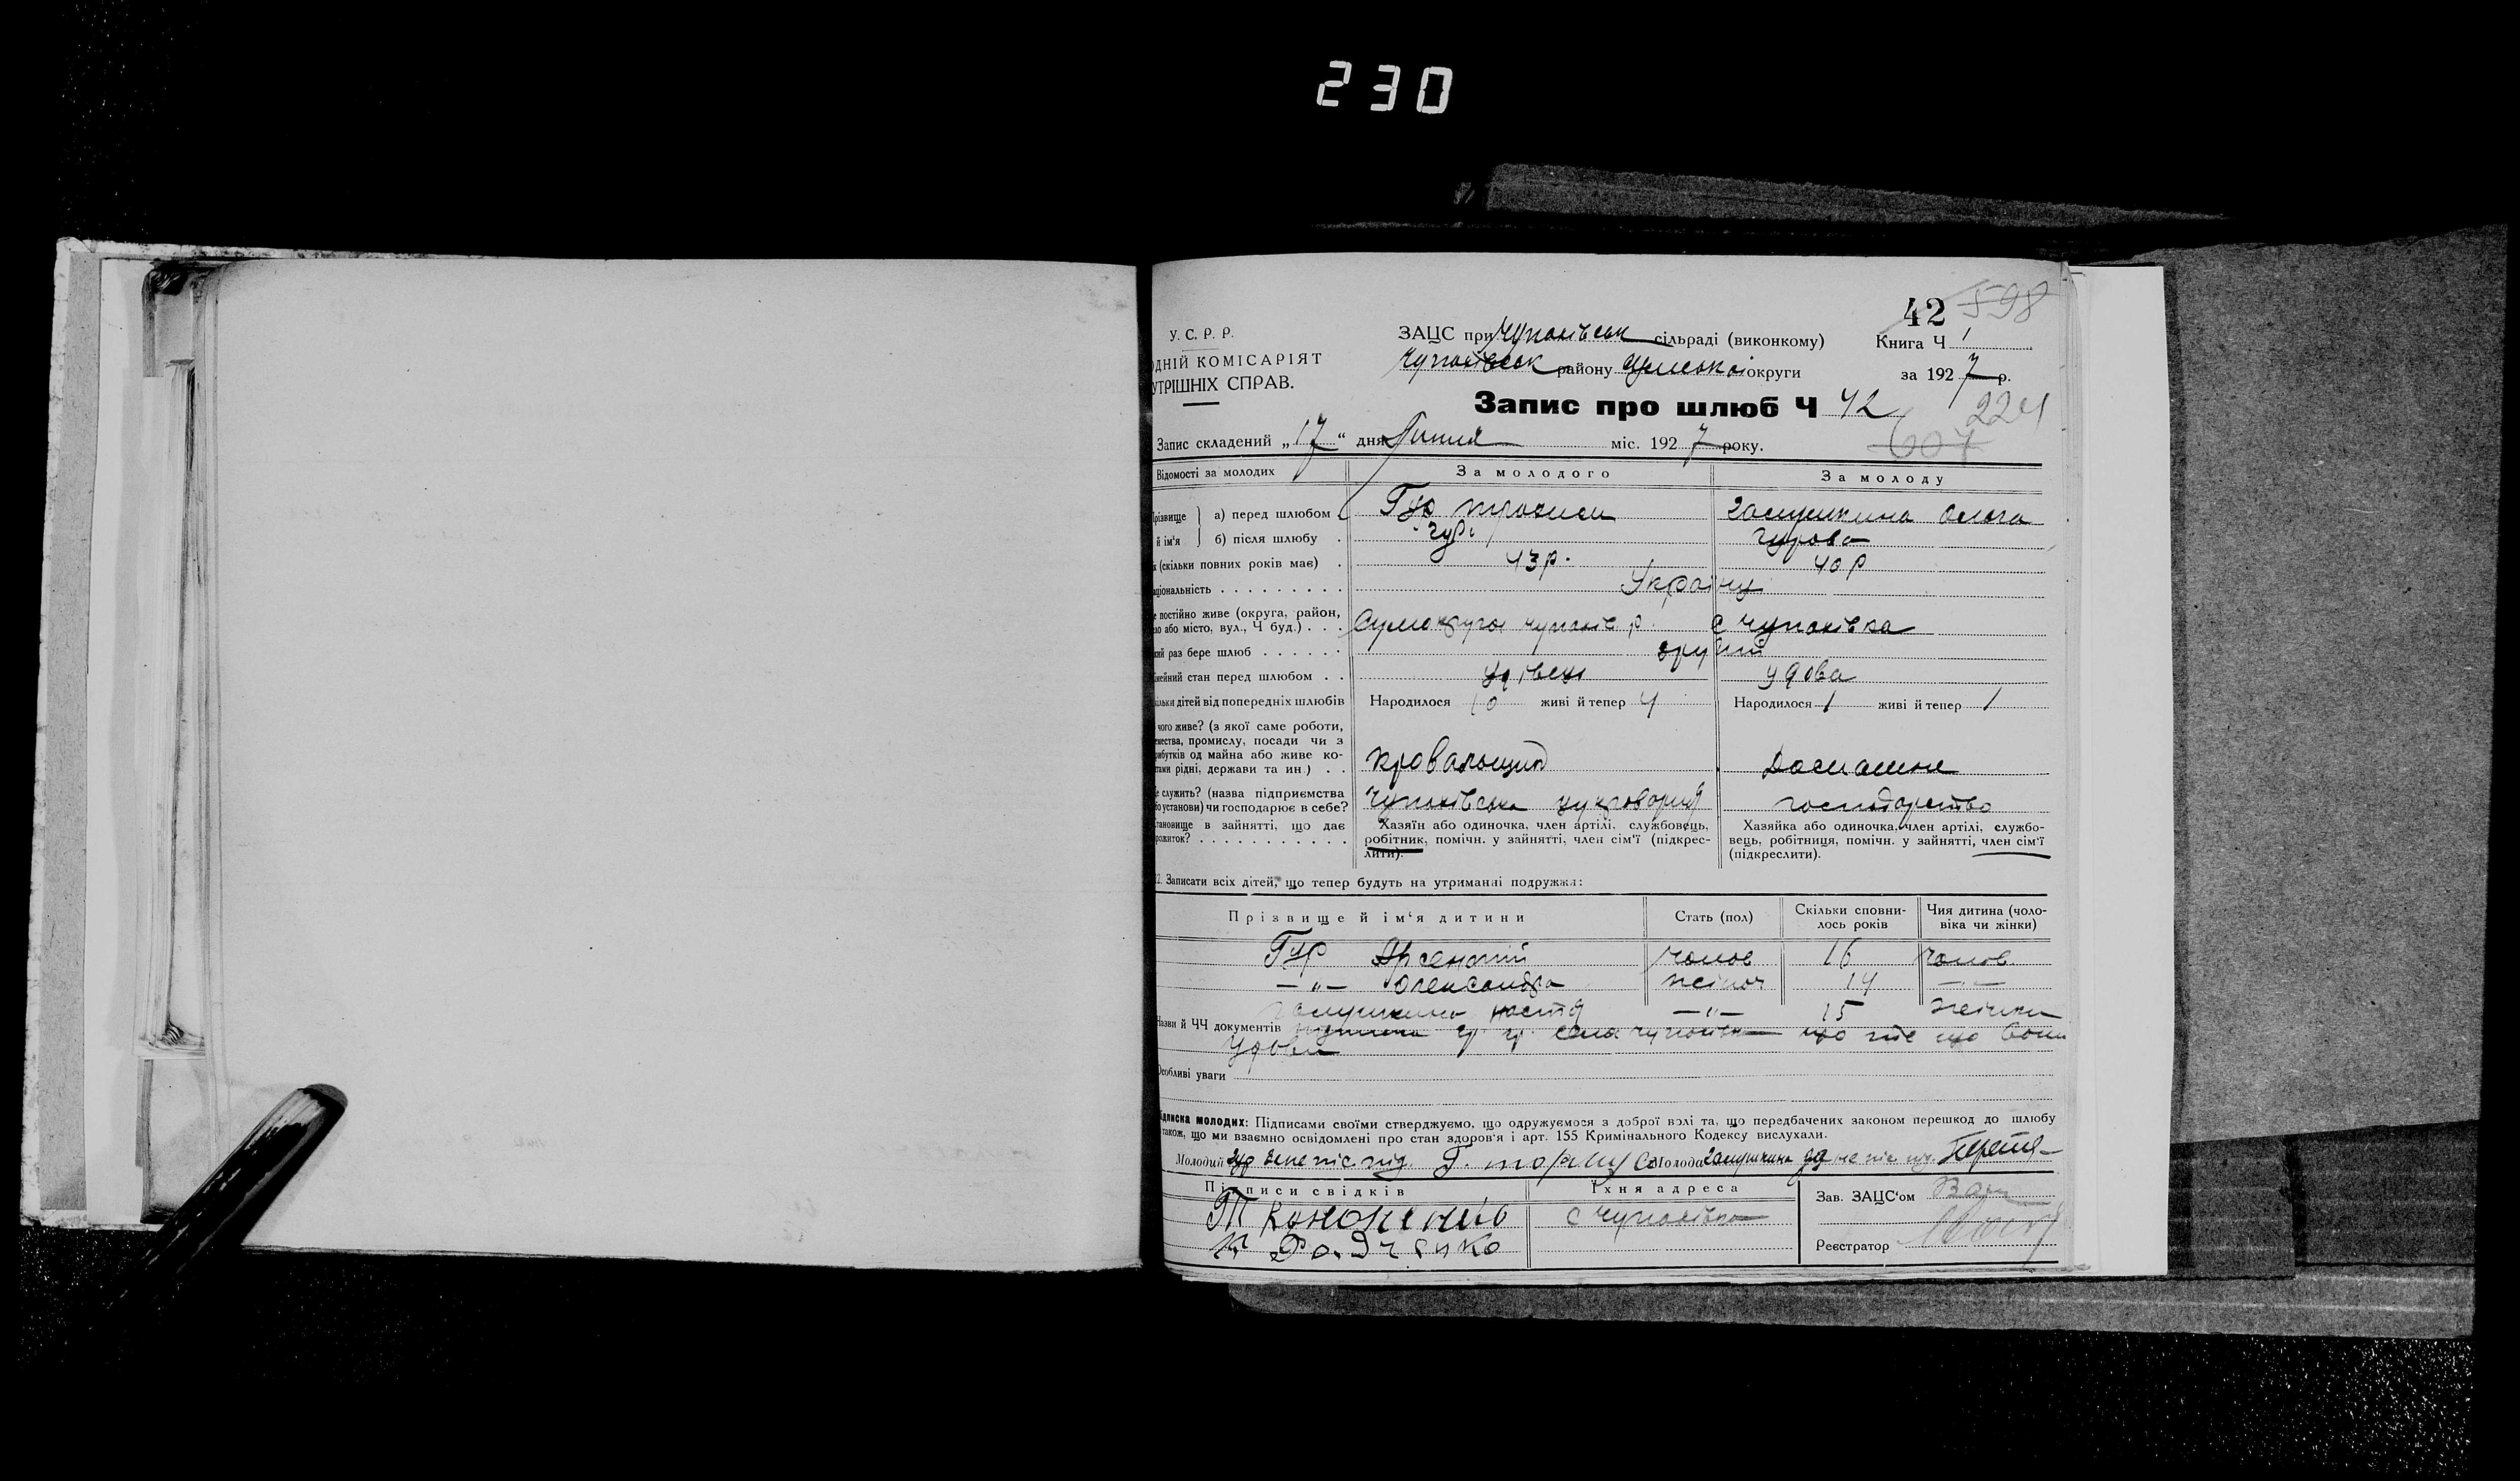 230
42 598
У. С. Р. Р.
ЗАЦС при Чупахівськ сільраді (виконкому) Книга Ч 1
ОДНІЙ КОМІСАРІЯТ
Чупахівськ району Сумської округи за 1927 р.
УТРІШНІХ СПРАВ.
Запис про шлюб Ч 42
224
607
Запис складений „17“ дня Липня міс. 1927 року.
Відомості за молодих За молодого За молоду
різвище а) перед шлюбом Гур Олога
й ім'я б) після шлюбу Гур Гурова
к (скільки повних років має) 43 р. 40 р
аціональність Українці
е постійно живе (округа, район,
ло або місто, вул., Ч буд.) Сумокруга чупахів р. с чупахівка
кий раз бере шлюб другий
мейний стан перед шлюбом удівець удова
ільки дітей від попередніх шлюбів Народилося 10 живі й тепер 4 Народилося 1 живі й тепер 1
чого живе? (з якої саме роботи,
мества, промислу, посади чи з
рибутків од майна або живе ко-
тами рідні, держави та ин.) кровальщик Домашнє
е служить? (назва підприємства
бо установи) чи господарює в себе? Чупахівська цукроварня господарство
тановище в зайнятті, що дає
рожиток? Хазяїн або одиночка, член артілі, службовець,
робітник, помічн. у зайнятті, член сім'ї (підкрес-
лити).
Хазяйка або одиночка, член артілі, службо-
вець, робітниця, помічн. у зайнятті, член сім'ї
(підкреслити).
2. Записати всіх дітей, що тепер будуть на утриманні подружжя:
Прізвище й ім'я дитини Стать (пол) Скільки сповни-
лось років Чия дитина (чоло-
віка чи жінки)
Гур Арсентий чолов 16 чолов.
—„— Олександра жіноч 14 —„—
настя —„— 15 жінки
Назви й ЧЧ документів села що вони
Удови
Особливі уваги
ідписка молодих: Підписами своїми стверджуємо, що одружуємося з доброї волі та, що передбачених законом перешкод до шлюбу
також, що ми взаємно освідомлені про стан здоров'я і арт. 155 Кримінального Кодексу вислухали.
Молодий Гур Молода
Підписи свідків Їхня адреса Зав. ЗАЦС'ом
Т Кононенко с Чупахівка
Радченко Реєстратор